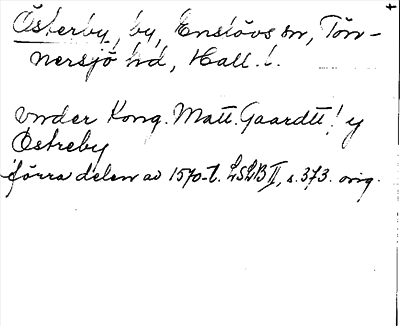 Österby, by, Enslövs sn, Tön-
nersjö hd, Hall. l.
vnder Kong. Matt. Gaardtt! y
Östreby
förra delen av 1570-t. LSLB II, s. 373. orig.